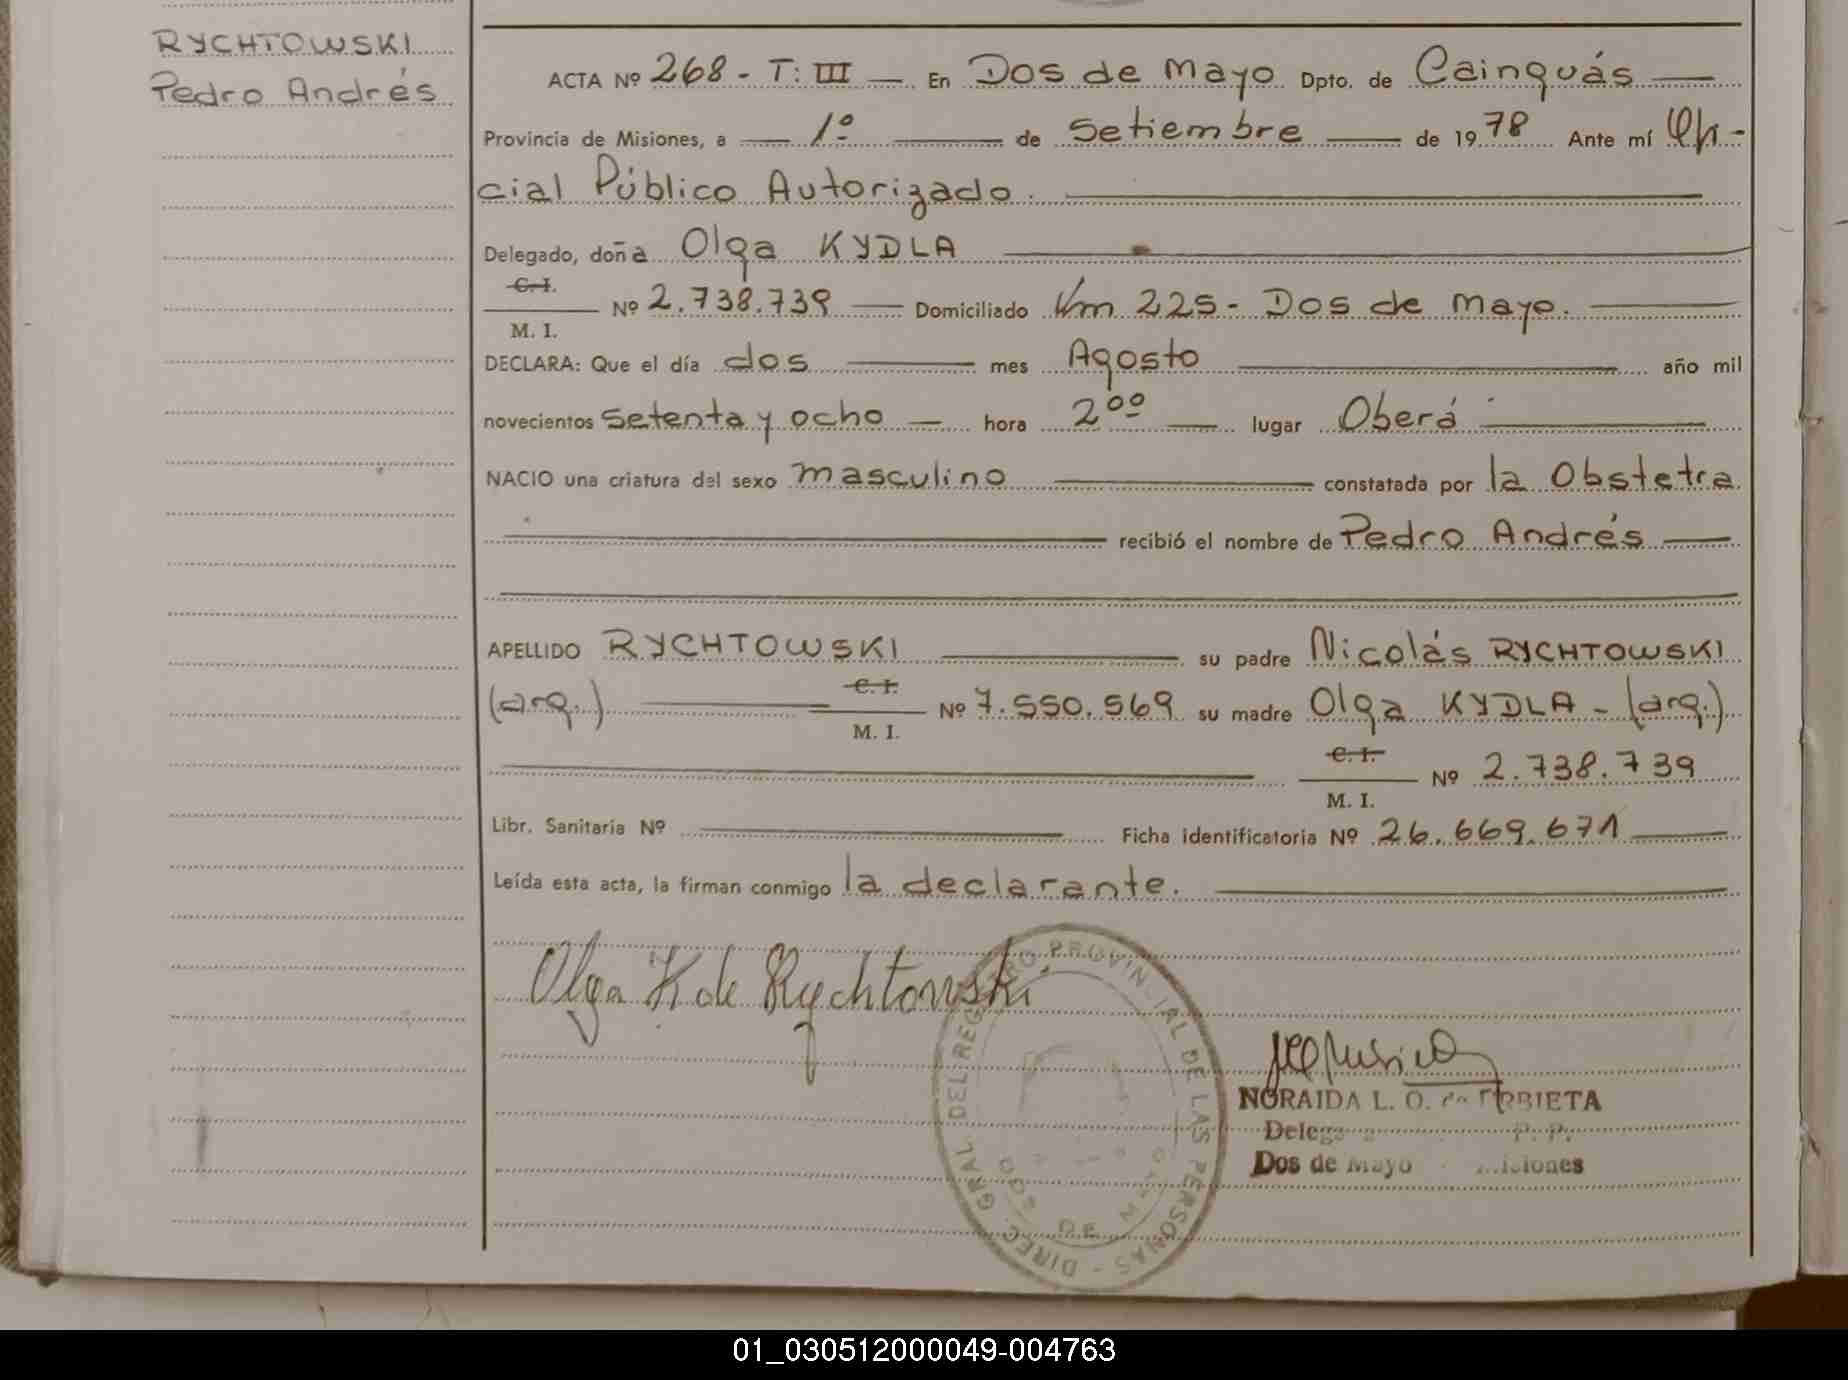 RYCHTOWSKI
Pedro Andrés
ACTA Nº 268 - T: III — En Dos de Mayo Dpto. de Cainguás —
Provincia de Misiones, a — 1º — de Setiembre — de 1978 Ante mí Ofi-
cial Público Autorizado.
Delegado, doña Olga KYDLA
C. I.
M. I. Nº 2.738.739 — Domiciliado Km 225 - Dos de Mayo.
DECLARA: Que el día dos — mes Agosto — año mil
novecientos setenta y ocho — hora 2⁰⁰ — lugar Oberá —
NACIO una criatura del sexo masculino — constatada por la Obstetra
recibió el nombre de Pedro Andrés —
APELLIDO RYCHTOWSKI — su padre Nicolás RYCHTOWSKI
(arg.) — C. I.
M. I. Nº 7.550.569 su madre Olga KYDLA - (arg.)
C. I.
M. I. Nº 2.738.739
Libr. Sanitaria Nº — Ficha identificatoria Nº 26.669.671 —
Leída esta acta, la firman conmigo la declarante. —
Olga K de Rychtowski
DIREC. GRAL. DEL REGISTRO PROVINCIAL DE LAS PERSONAS -
DOS DE MAYO
NORAIDA L. O. de URBIETA
P. P.
Dos de Mayo - Misiones
01_030512000049-004763